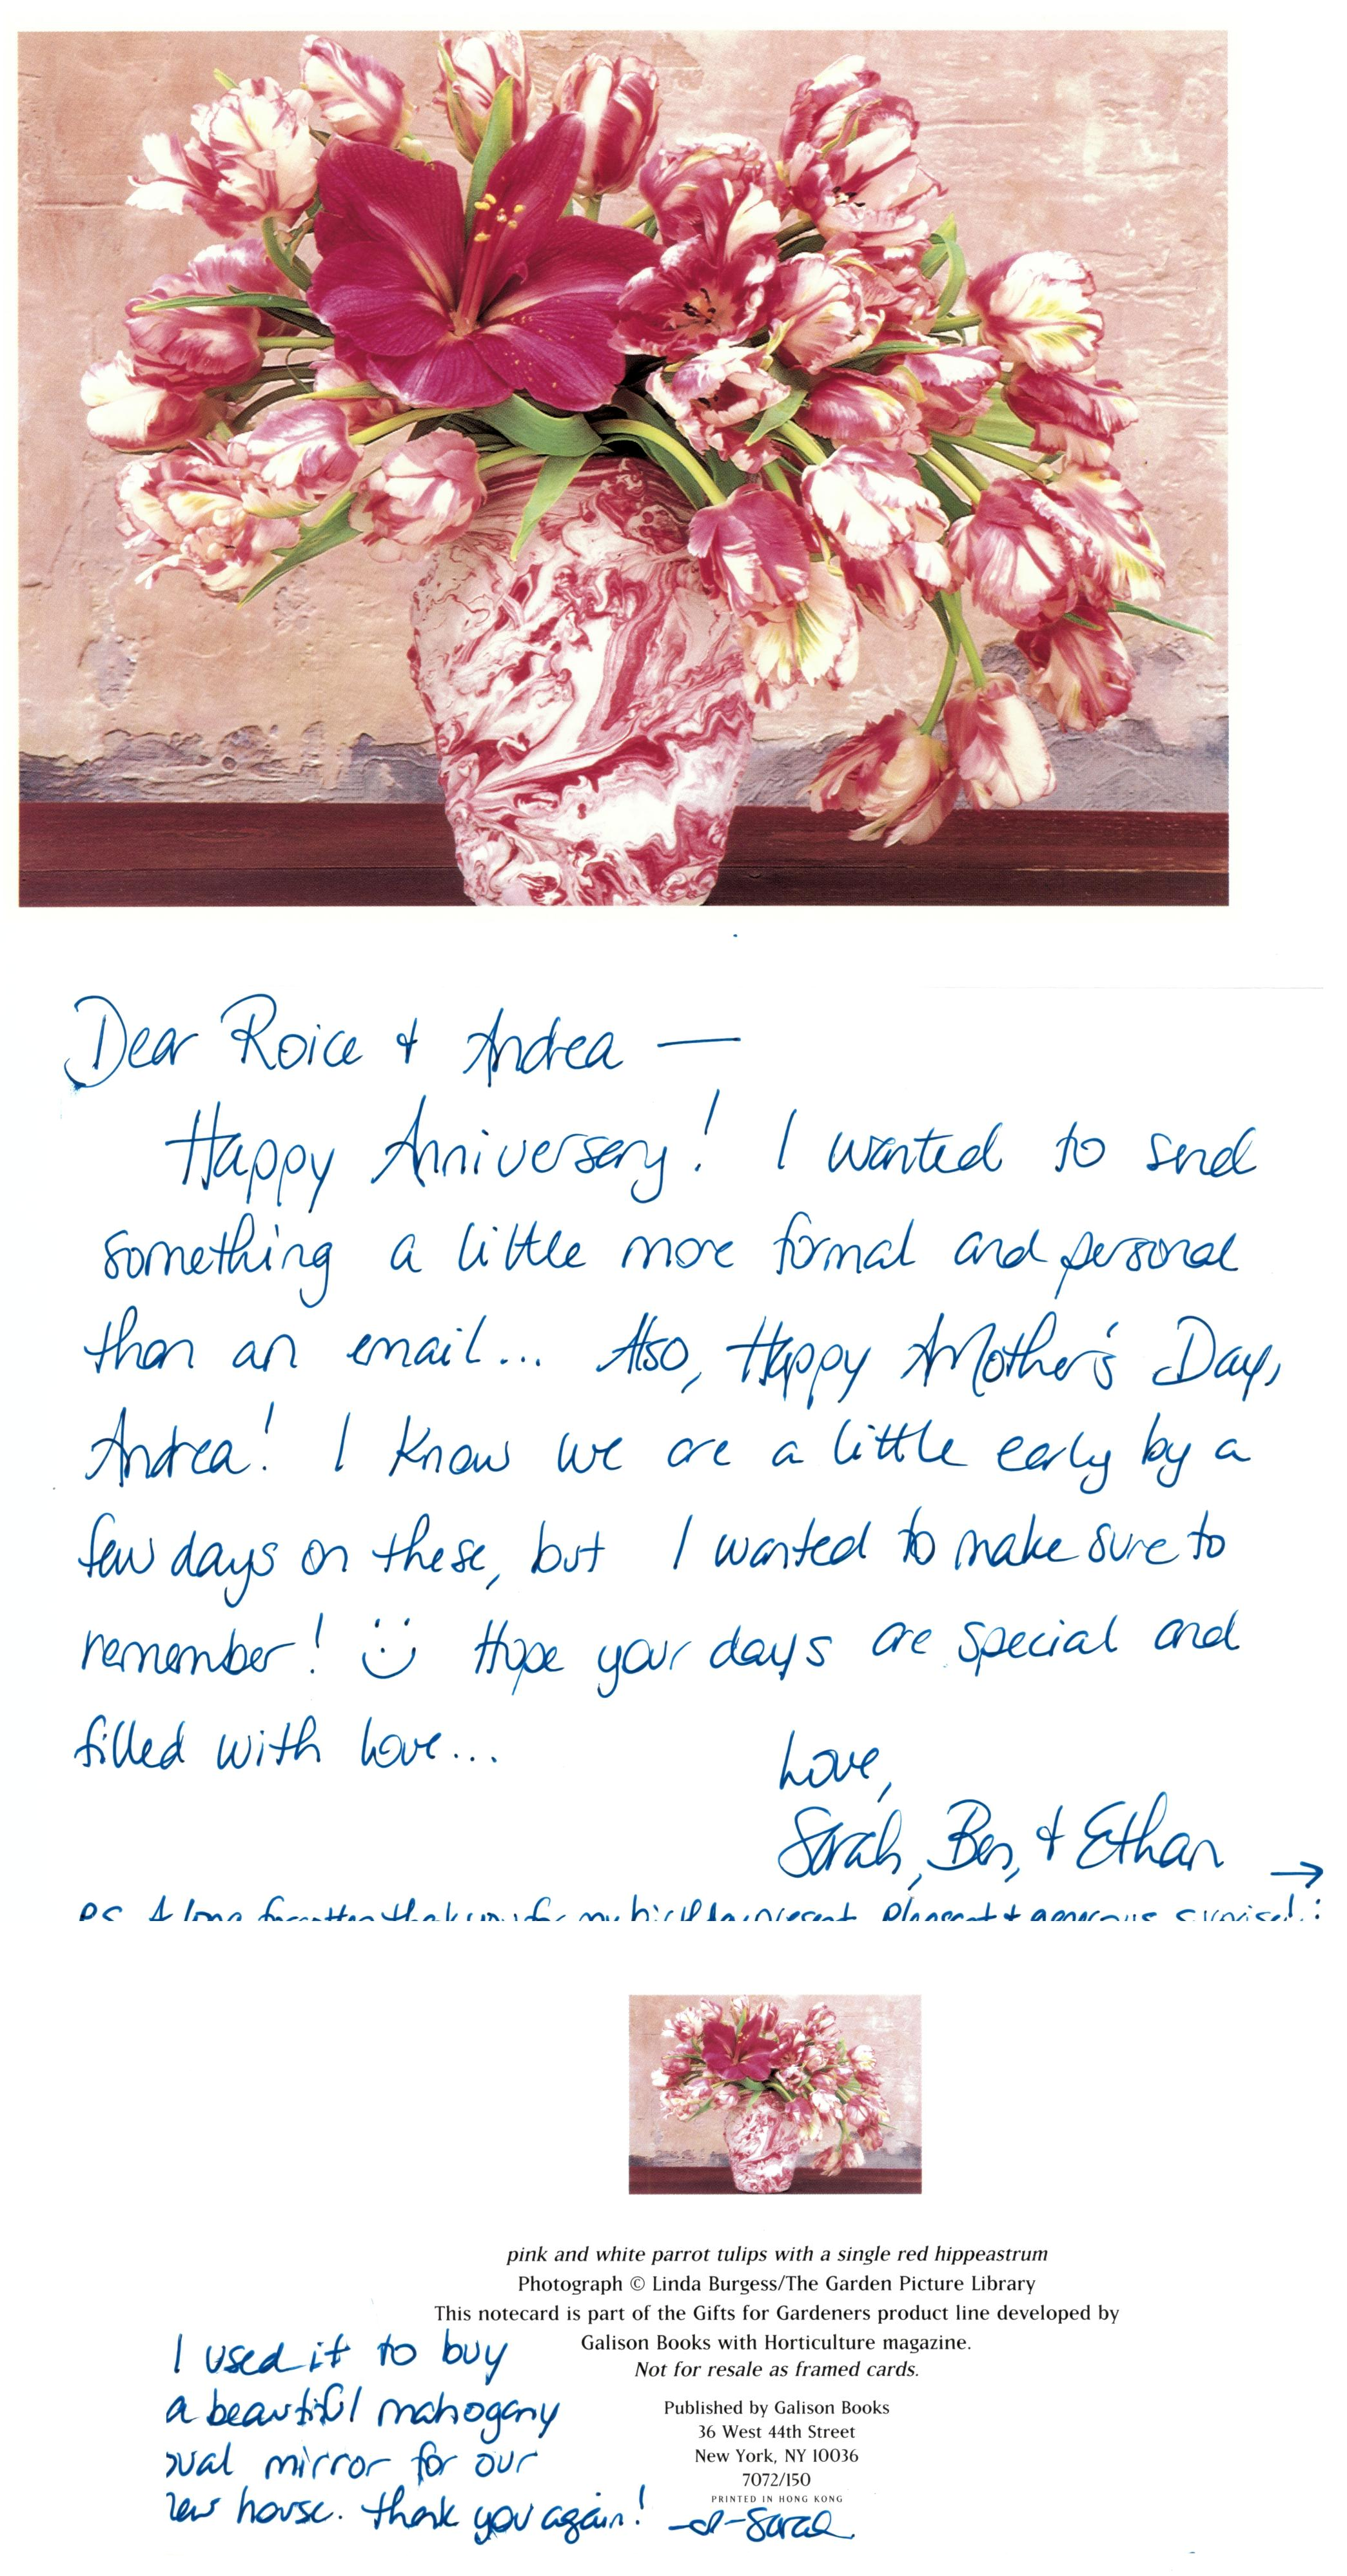 Dear Roice & Andrea —
Happy Anniversary! I wanted to send
something a little more formal and personal
than an email... Also, Happy Mother's Day,
Andrea! I know we are a little early by a
few days on these, but I wanted to make sure to
remember! Hope your days are special and
filled with love...
Love,
Sarah, Ben, & Ethan →
P.S. A long forgotten thank you for my birthday present. Pleasant & generous surprise! :
pink and white parrot tulips with a single red hippeastrum
Photograph © Linda Burgess/The Garden Picture Library
This notecard is part of the Gifts for Gardeners product line developed by
Galison Books with Horticulture magazine.
Not for resale as framed cards.
Published by Galison Books
36 West 44th Street
New York, NY 10036
7072/150
PRINTED IN HONG KONG
I used it to buy
a beautiful mahogany
oval mirror for our
new house. Thank you again! -Sarah